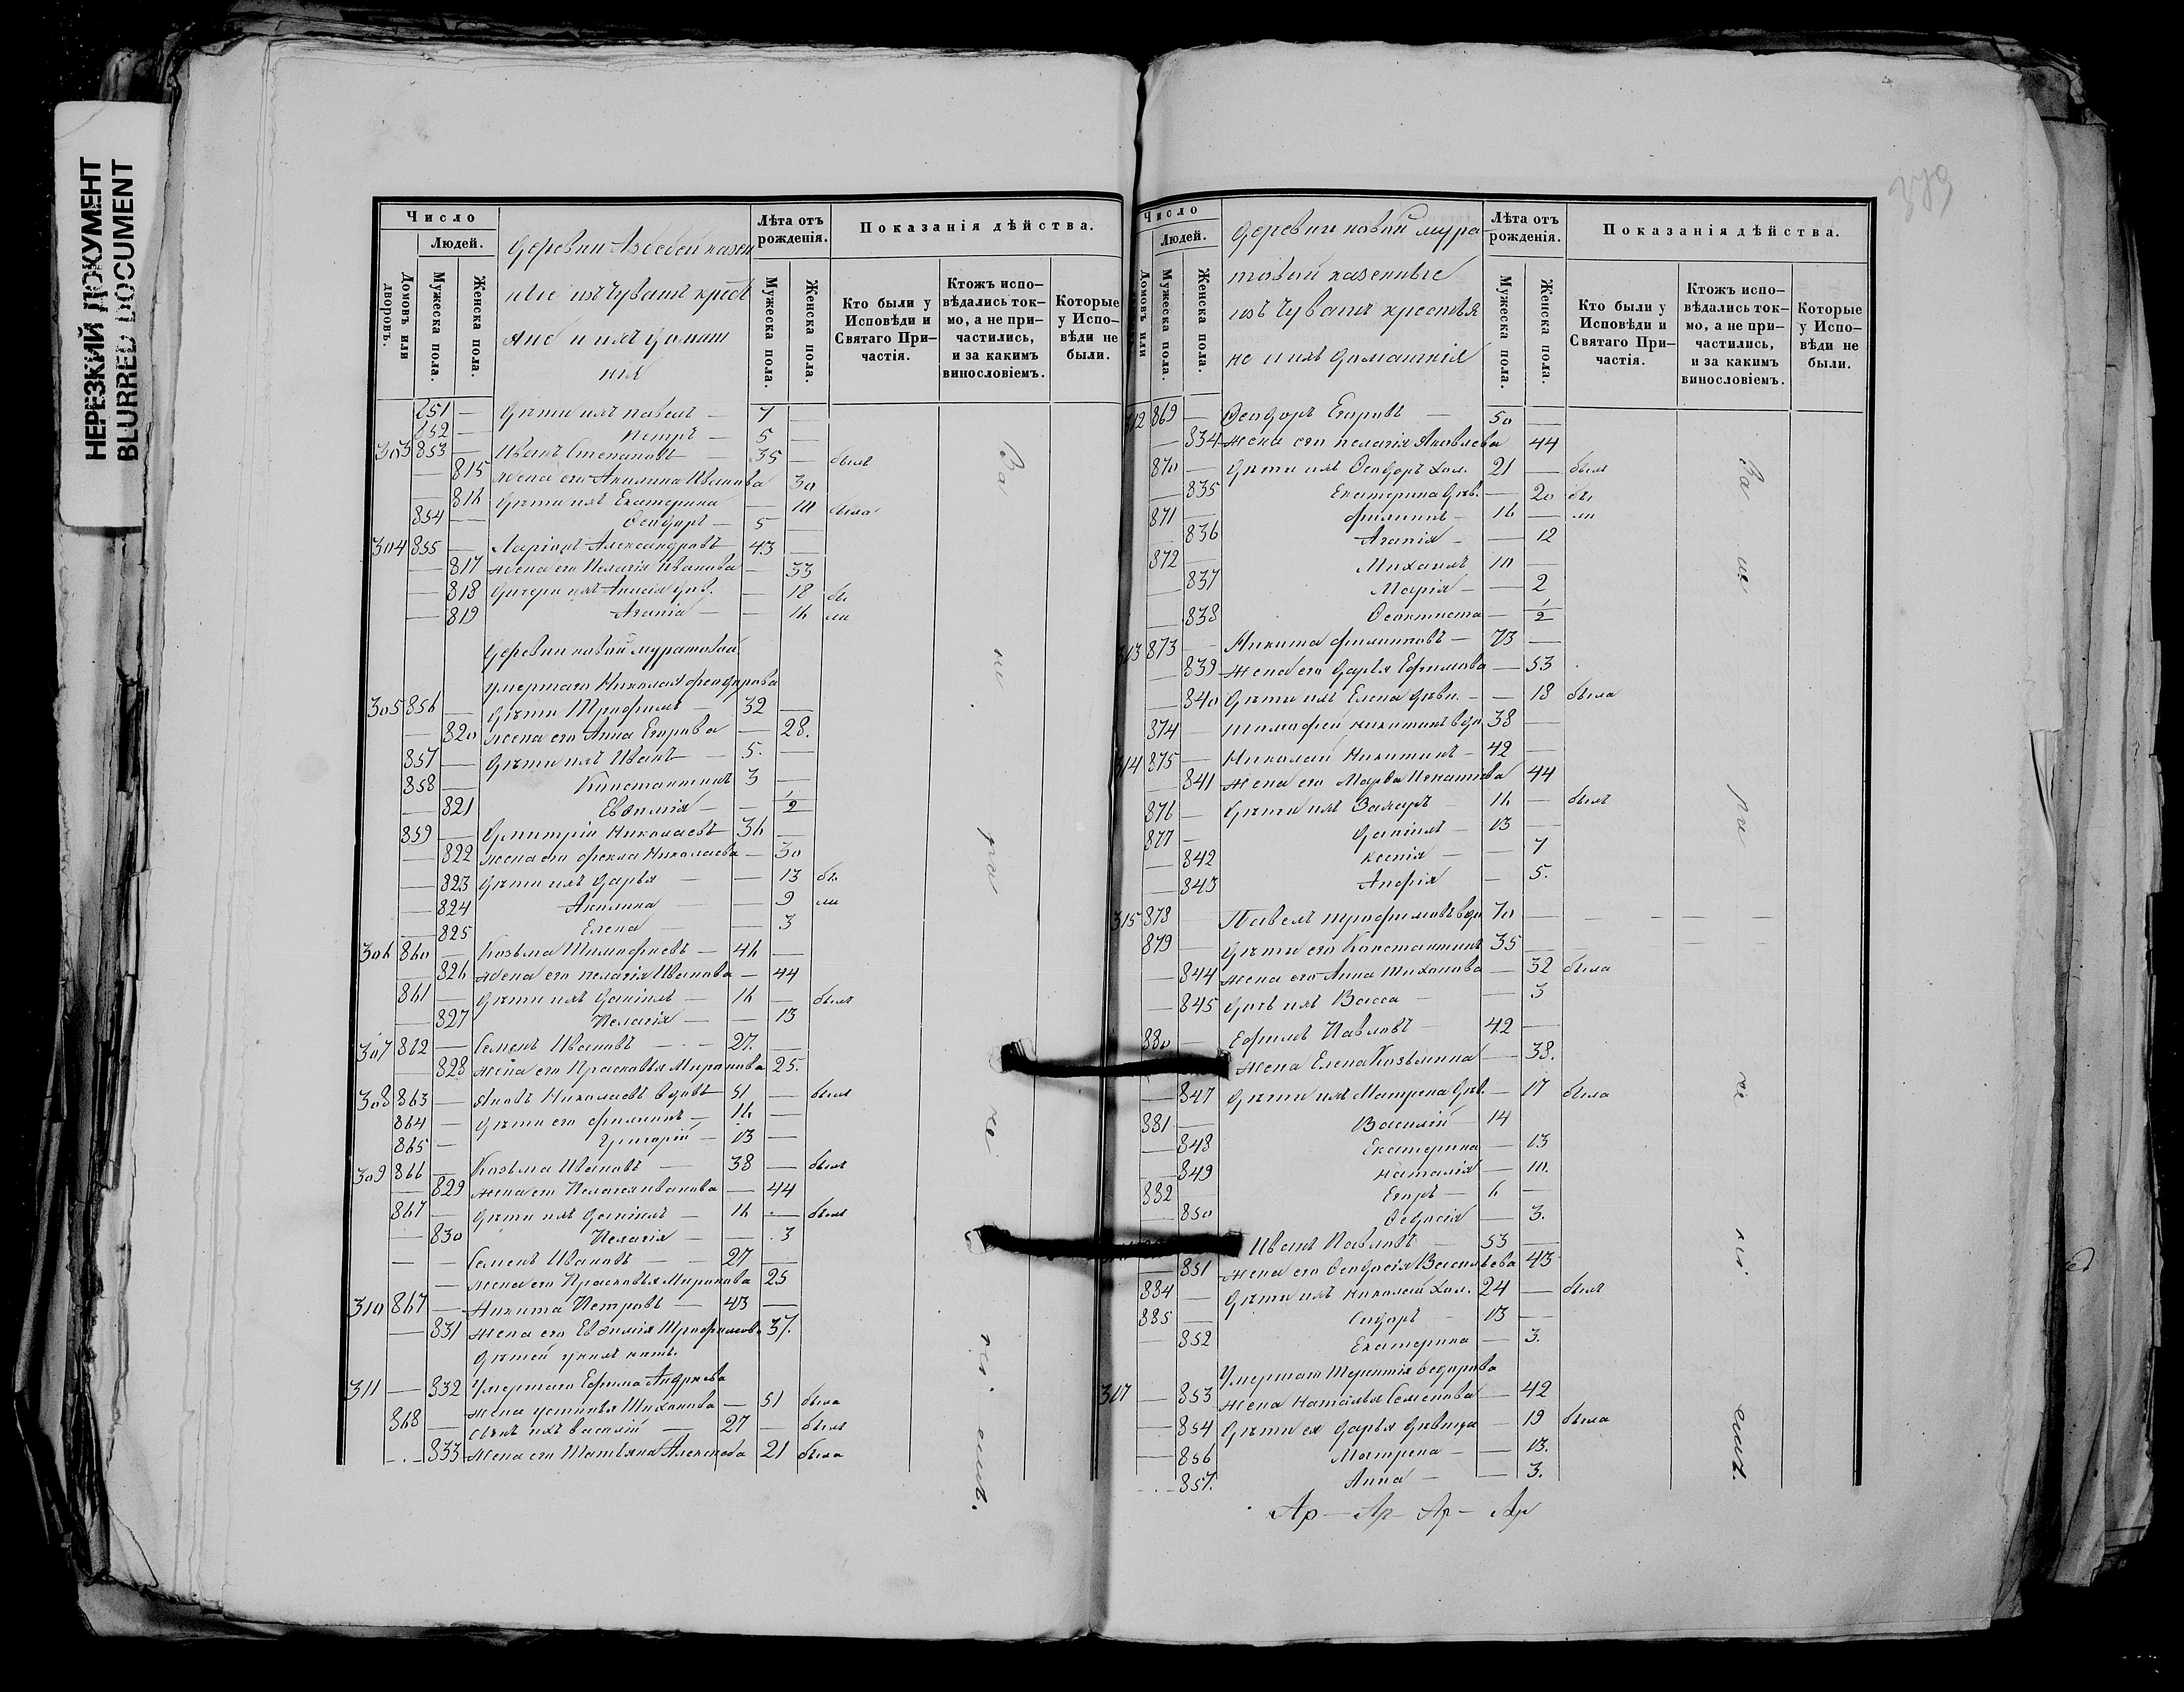 НЕРЕЗКИЙ ДОКУМЕНТ
BLURRED DOCUMENT
379
Число
Людей.
Домовъ или дворовъ.
Мужеска пола.
Женска пола.
Деревни Азбебей казен
ные изъ чувашъ крестъ
яне и ихъ домаш
нія
Лѣта отъ рожденія.
Мужеска пола.
Женска пола.
Показанія дѣйства.
Кто были у Исповѣди и Святаго При-частія.
Ктожъ испо-вѣдались ток-мо, а не при-частились, и за какимъ винословіемъ.
Которые у Испо-вѣди не были.
851 — Дѣти ихъ Павелъ — 7 —
852 — Петръ — 5 —
303 853 — Иванъ Степановъ — 35 — былъ
— 815 жена его Акилина Иванова 30
— 816 Дѣти ихъ Екатерина — 10 была
854 — Ѳеодоръ — 5 —
304 855 — Ларіонъ Александровъ 43 —
— 817 жена его Пелагія Иванова — 33
— 818 Дочери ихъ Анисія дѣв. — 18 бы
— 819 Агапія — — 16 ли
Деревни новой муратовой
умершаго Николая феодорова
305 856 — Дѣти Трофимъ — 32 —
— 820 жена его Анна Егорова — 28.
857 — Дѣти ихъ Иванъ — 5. —
858 — Константинъ 3 —
— 821 Евѳимія — — 1/2
859 — Дмитрій Николаевъ 36 —
— 822 жена его фекла Николаева — 30
— 823 Дѣти ихъ Дарья — — 13 бы
— 824 Акилина — — 9 ли
— 825 Елена — — 3
306 860 — Козьма Тимофеевъ — 46 —
— 826 жена его пелагія Иванова — 44
861 — Дѣти ихъ Даніилъ — 16 — былъ
— 827 Пелагія — — 13
307 862 — Семенъ Ивановъ — 27. —
— 828 жена его Прасковья Миронова 25.
308 863 — Яковъ Николаевъ вдовъ 51 — былъ
864 — Дѣти его филиппъ — 16 —
865 — Григорій — 13 —
309 866 — Козьма Ивановъ — 38 — былъ
— 829 жена его Пелагея иванова — 44
867 — Дѣти ихъ Даніилъ — 16 — былъ
— 830 Пелагія — — 3
— — Семенъ Ивановъ — 27 —
— жена его Прасковья Миронова 25
310 867 — Никита Петровъ — 43 —
— 831 жена его Евѳимія Трофимова 37.
дѣтей у нихъ нѣтъ.
311 — 832 Умершаго Ефима Андреева
жена устинья Тихонова — 51 была
868 — Сынъ ихъ василій — 27 — былъ
— 833 Жена его Татьяна Алексѣева 21 была
За не ра че ні емъ.
Число
Людей.
Домовъ или
Мужеска пола.
Женска пола.
Деревни новой мура
товой казенные
изъ чувашъ крестья
не и ихъ домашнія
Лѣта отъ рожденія.
Мужеска пола.
Женска пола.
Показанія дѣйства.
Кто были у Исповѣди и Святаго При-частія.
Ктожъ испо-вѣдались ток-мо, а не при-частились, и за какимъ винословіемъ.
Которые у Испо-вѣди не были.
312 869 — Ѳеодоръ Егоровъ — 50 —
— 834 жена его пелагія Яковлева 44
870 — Дѣти ихъ Ѳеодоръ хол. 21 — былъ
— 835 Екатерина дѣв. — 20 бы
871 — филиппъ — 16 — ли
— 836 Агапія — — 12
872 — Михаилъ 10 —
— 837 Марія — — 2
— 838 Ѳеоктиста — 1/2
313 873 — Никита филиповъ — 73 —
— 839 Жена его Дарья Ефимова — 53
— 840 Дѣти ихъ Елена дѣви. — 18 была
874 — тимофей никитинъ вдо 38 —
314 875 — Николай Никитинъ — 42 —
— 841 Жена его Марва Игнатіева 44
876 — Дѣти ихъ Захаръ — 16 — былъ
877 — Даніилъ — 13 —
— 842 ксенія — — 7
— 843 Анофія — 5.
315 878 — Павелъ трофимовъ вдо 70 —
879 — Дѣти его Константинъ 35 —
— 844 жена его Анна тихонова — 32 была
— 845 дочь ихъ Васса — — 3
880 — Ефимъ Павловъ — 42 —
Жена Елена Козьмина — 38.
— 847 Дѣти ихъ Матрена дѣв. — 17 была
881 — Василій — 14
— 848 Екатерина — 13
— 849 наталія — 10.
882 — Егоръ — 6 —
— 850 Ѳеодосія — 3.
Иванъ Павловъ — 53 —
— 851 Жена его Ѳеодосія Васильева 43
884 — Дѣти ихъ николай хол. 24 — былъ
885 — Сидоръ — 13 —
— 852 Екатерина — 3.
Умершаго Терентія Ѳеодорова
317 — 853 жена Наталья Семенова — 42
— 854 Дѣти ея Дарья дѣвица — 19 была
— 856 Матрена — — 13.
— 857. Анна — — 3.
За не ра че ні емъ.
Ар — Ар — Ар — Ар